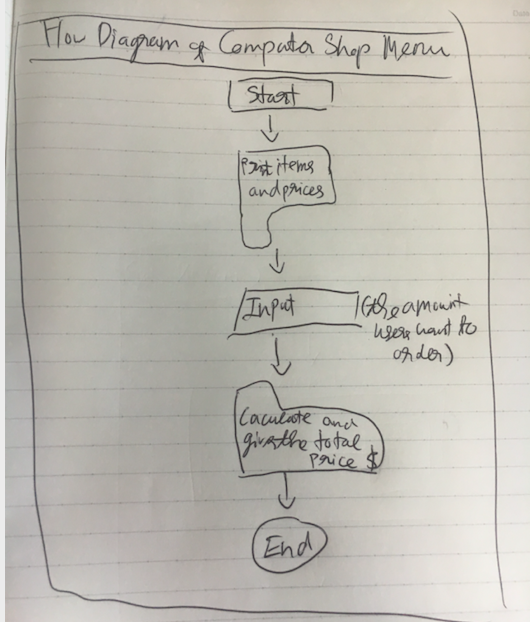 Flow Diagram of Computer Shop Menu
Start
Print items
and prices
Input
(the amount
users want to
order)
Caculate and
gives the total
price $
End